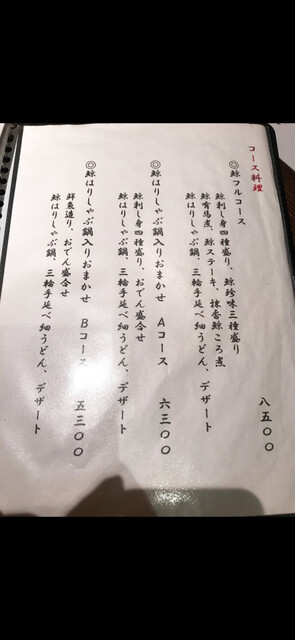 コース料理
◎鯨フルコース 八五〇〇
鯨刺し身四種盛り、鯨珍味三種盛り
鯨有馬煮、鯨ステーキ、抹香鯨ころ煮
鯨はりしゃぶ鍋、三輪手延べ細うどん、デザート
◎鯨はりしゃぶ鍋入りおまかせ Aコース 六三〇〇
鯨刺し身四種盛り、おでん盛合せ
鯨はりしゃぶ鍋、三輪手延べ細うどん、デザート
◎鯨はりしゃぶ鍋入りおまかせ Bコース 五三〇〇
鮮魚造り、おでん盛合せ
鯨はりしゃぶ鍋、三輪手延べ細うどん、デザート